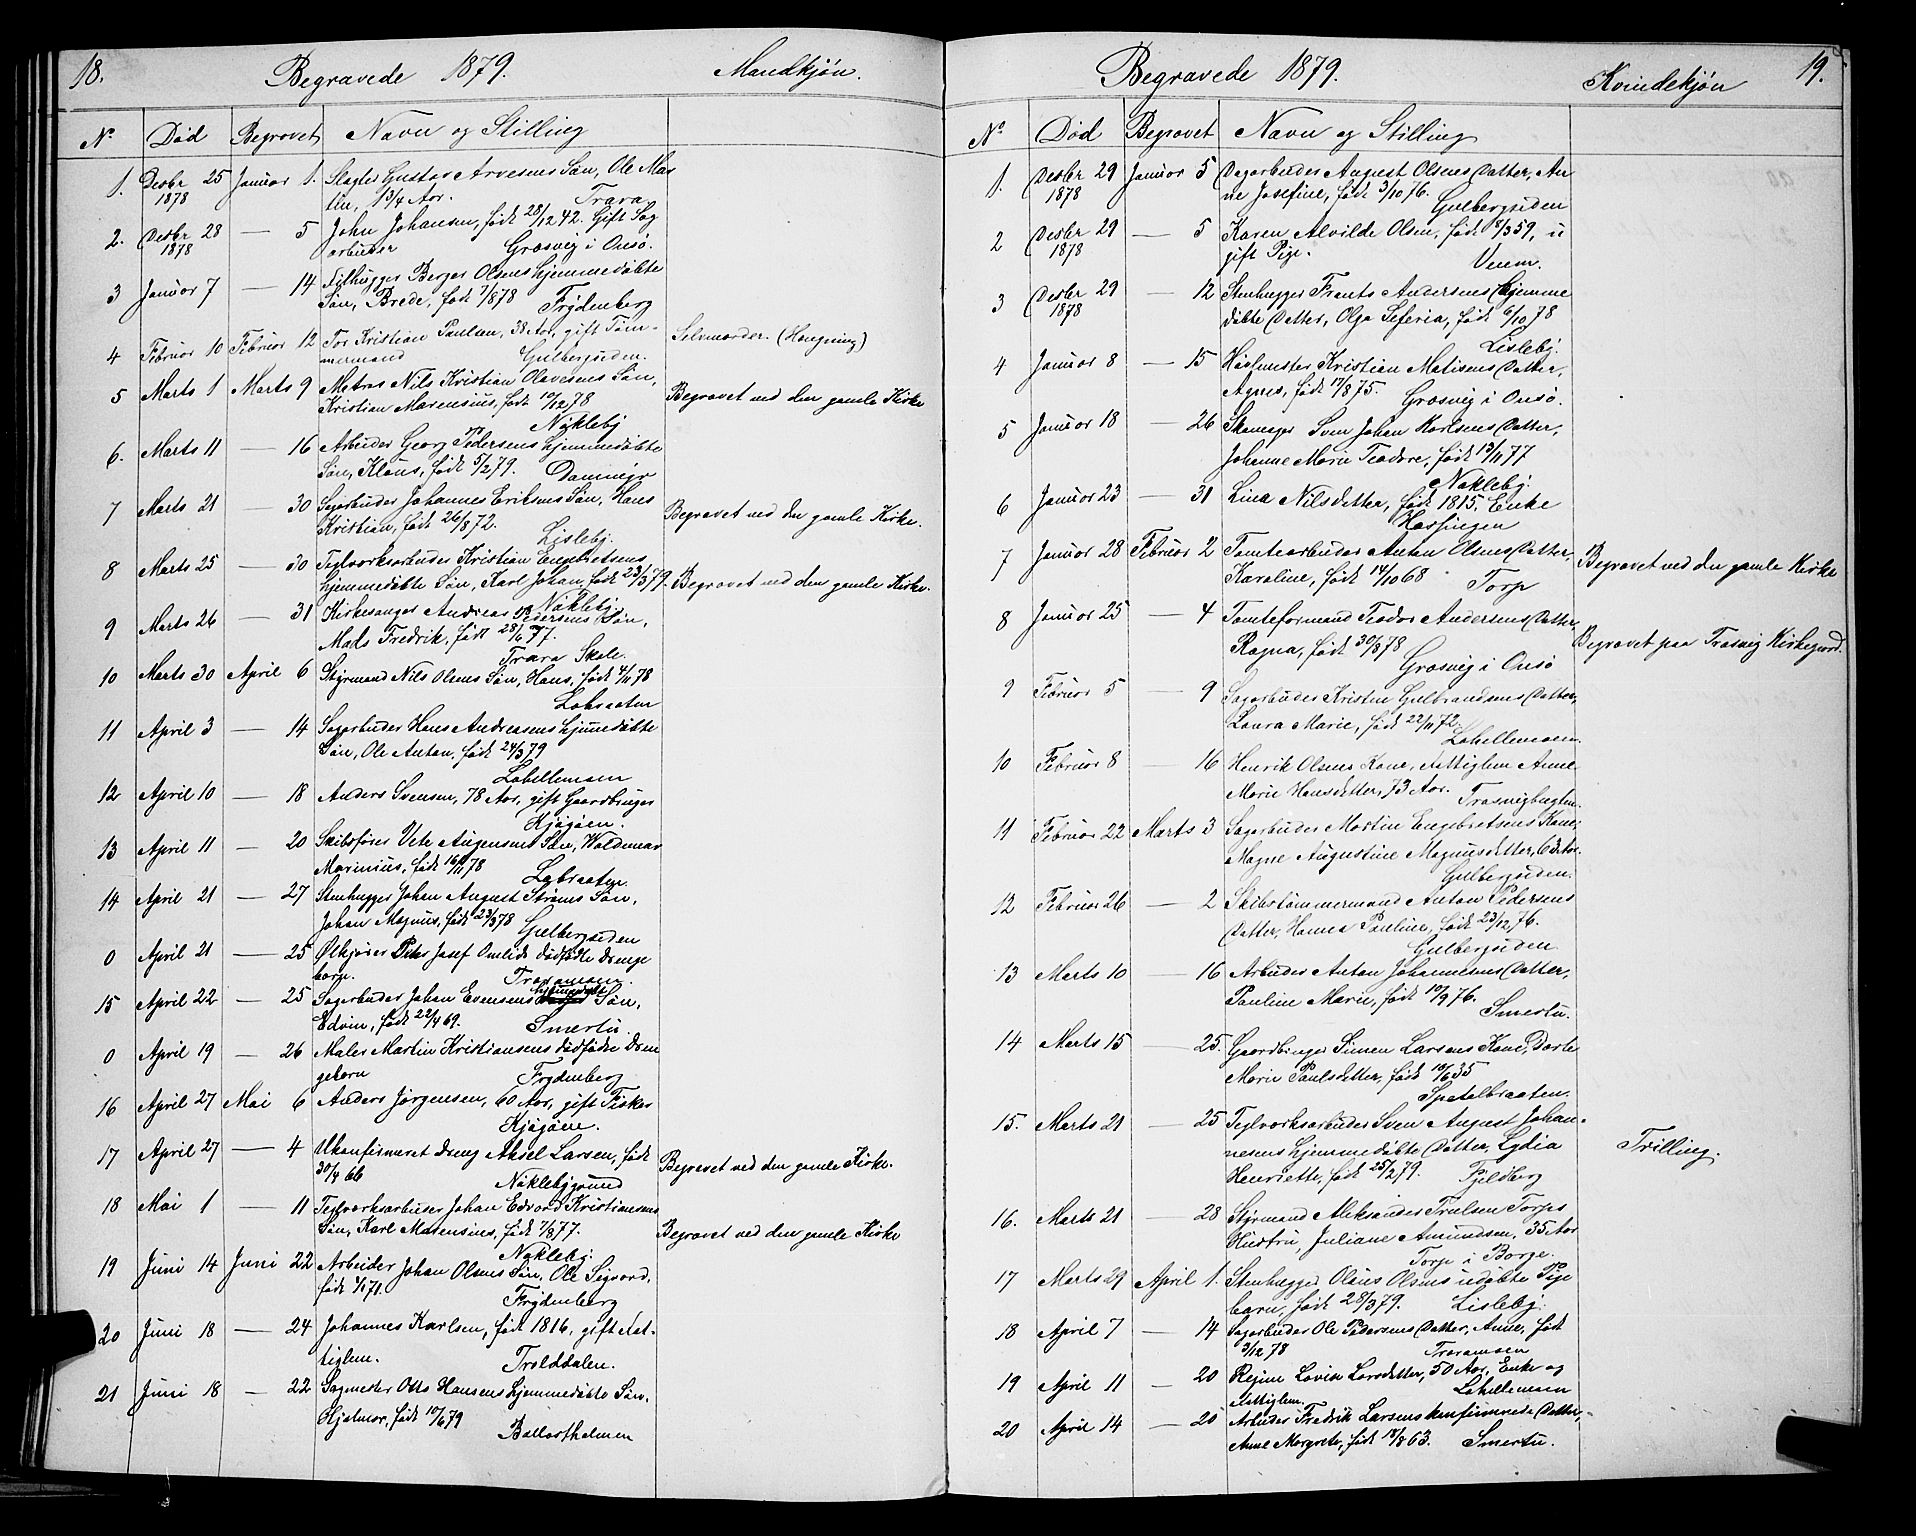 18.
Begravede 1879.
Mandkjøn.
No Død Begravet Navn og Stilling
1. Desbr 25 Januar 1. Slagter Gustav Arvesens Søn, Ole Mar
1878 tin, 1 3/4 Aar. Trara
2. Desbr 28 — 5 John Johansen, født 28/12 42. Gift Sag
1878 arbeider Græsvig i Onsø.
3 Januar 7 — 14 Filhugger Berger Olsens hjemmedøbte
Søn, Brede, født 1/8 78 Frydenberg
4 Februar 10 Februar 12 Tor Kristian Paulsen, 38 Aar, gift Tøm- Selvmorder. (Hængning)
mermand Gulbergsiden.
5 Marts 1 Marts 9 Matros Nils Kristian Olavesens Søn,
Kristian Marensius, født 10/12 78 Begravet ved den gamle Kirke
Nøkleby
6. Marts 11 — 16 Arbeider Georg Pedersens hjemmedøbte
Søn, Klaus, født 5/2 79. Dammyr
7 Marts 21 — 30 Sagarbeider Johannes Eriksens Søn, Hans
Kristian, født 26/8 72. Begravet ved den gamle Kirke.
Lisleby.
8 Marts 25 — 30 Teglværksarbeider Kristian Engebretsens
hjemmedøbte Søn, Karl Johan, født 23/3 79. Begravet ved den gamle Kirke.
Nøkleby
9 Marts 26 — 31 Kirkesanger Andreas Pedersens Søn,
Mads Fredrik, født 28/6 77.
Trara Skole.
10 Marts 30 April 6 Styrmand Nils Olsens Søn, Hans, født 4/11 78
Labraaten
11 April 3 — 14 Sagarbeider Hans Andreasens hjemmedøbte
Søn, Ole Anton, født 24/3 79
Lahellemoen
12 April 10 — 18 Anders Svensen, 78 Aar, gift Gaardbruger
Kjøgøen.
13 April 11 — 20 Skibsfører Vete Augensens Søn, Waldemar
Marinius, født 16/11 78
Labraaten.
14 April 21 — 27 Stenhugger Johan August Strøms Søn,
Johan Magnus, født 23/3 78 Gulbergsiden
0 April 21 — 25 Ølkjører Peter Josef Omlids dødfødte Drenge
barn. Traramoen.
15 April 22 — 25 Sagarbeider Johan Evensens hjemmedøbte Søn,
Edvin, født 22/4 69. Smertu.
0 April 19 — 26 Maler Martin Kristiansens dødfødte Dren
gebarn Frydenberg
16 April 27 Mai 6 Anders Jørgensen, 60 Aar, gift Fisker
Kjøgøen.
17 April 27 — 4 Ukonfirmeret Dreng Aksel Larsen, født
30/4 66 Nøklebygrund Begravet ved den gamle Kirke.
18 Mai 1 — 11 Teglværksarbeider Johan Edvard Kristiansens
Søn, Karl Marensius, født 7/8 77. Begravet ved den gamle Kirke
Nøkleby.
19 Juni 14 Juni 22 Arbeider Johan Olsens Søn, Ole Sigvard,
født 1/1 71. Frydenberg
20 Juni 18 — 24 Johannes Karlsen, født 1816, gift Fat-
tiglem. Trolddalen.
21 Juni 18 — 22 Sagmester Otto Hansens hjemmedøbte Søn,
Hjalmar, født 10/6 79
Ballastholmen
19.
Begravede 1879.
Kvindekjøn
No Død Begravet Navn og Stilling
1. Desbr 29 Januar 5 Dagarbeider August Olsens Datter, An
1878 ne Josefine, født 3/10 76. Gulbergsiden
2 Desbr 29 — 5 Karen Alvilde Olsen, født 8/3 59, u
1878 gift Pige. Veum.
3 Desbr 29 — 12 Stenhugger Frants Andersens hjemme
1878 døbte Datter, Olga Seferia, født 6/10 78
Lisleby.
4 Januar 8 — 15 Høvlmester Kristian Matisens Datter,
Agnes, født 17/8 75. Græsvig i Onsø.
5 Januar 18 — 26 Skomager Sven Johan Karlsens Datter,
Johanne Marie Teodore, født 13/11 77
Nøkleby.
6 Januar 23 — 31 Lina Nilsdatter, født 1815, Enke
Hassingen
7 Januar 28 Februar 2 Tomtearbeider Anton Olsens Datter,
Karoline, født 14/10 68 Torp Begravet ved den gamle Kirke
8 Januar 25 — 4 Tomteformand Teodor Andersens Datter,
Ragna, født 30/8 78 Begravet paa Trosvig Kirkegaard.
Græsvig i Onsø
9 Februar 5 — 9 Sagarbeider Kristen Gulbrandsens Datter,
Laura Marie, født 22/11 72.
Lahellemoen.
10 Februar 8 — 16 Henrik Olsens Kone, Fattiglem Anne
Marie Hansdatter, 73 Aar. Trosvigbugten.
11 Februar 22 Marts 3 Sagarbeider Martin Engebretsens Kone,
Magne Augustine Magnusdatter, 63 Aar.
Gulbergsiden.
12 Februar 26 — 2 Skibstømmermand Anton Pedersens
Datter, Hanna Pauline, født 23/12 76.
Gulbergsiden
13 Marts 10 — 16 Arbeider Anton Johannesens Datter,
Pauline Marie, født 10/9 76.
Smertu.
14 Marts 15 — 25. Gaardbruger Simen Larsens Kone, Dorte
Marie Paulsdatter, født 10/6 35
Spetalbraaten.
15. Marts 21 — 25 Teglværksarbeider Sven August Johan-
nesens hjemmedøbte Datter, Lydia Trilling.
Henriette, født 25/2 79. Fjeldberg
16. Marts 21 — 28 Styrmand Aleksander Trulsen Torps
Hustru, Juliane Amundsen, 35 Aar
Torp i Borge.
17 Marts 29 April 1. Stenhugger Olaus Olsens udøbte Pige
barn, født 28/3 79. Lisleby.
18 April 7 — 14 Sagarbeider Ole Pedersens Datter, Anne, født
3/12 78 Traramoen
19 April 11 — 20 Regine Lovise Larsdatter, 50 Aar, Enke og
Fattiglem. Lahellemoen
20 April 14 — 20 Arbeider Fredrik Larsens konfirmerede Datter,
Anne Margrete, født 18/8 63. Smertu.